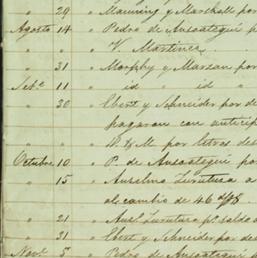 " 29 " Manning y Marshall por
Agosto 14 " Pedro de Ansoategui p
" V. Martinez
" 31 " Morphy y Marzan por
Set.e 11 " id " id "
" 30 " Ebert y Schneider por de
pagaron con anticip
" D. y M. por letras de
Octubre 10 " P. de Ansoategui po
" 15 " Anselmo Zurutuza a
al cambio de 46
" 21 " Ans.o Zurutuza p.r saldo d
" 31 " Ebert y Schneider por de
Nov.e 5 " Pedro de Ansoategui